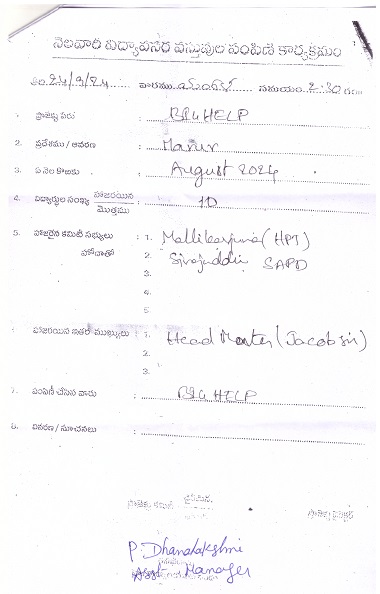 నెలవారీ విద్యావసర వస్తువుల పంపిణీ కార్యక్రమం
తేది: 24/9/24 వారము మంగళ సమయం 2:30 గంట
1. ప్రాజెక్టు పేరు : BIG HELP
2. ప్రదేశము / ఆవరణ : Manur
3. ఏ నెల కొరకు : August 2024
4. విద్యార్థుల సంఖ్య హాజరయిన / మొత్తము : 10
5. హాజరైన కమిటీ సభ్యులు : 1. Mallikarjuna (HPT)
హోదాతో 2. Sirajuddin SAPD
3.
4.
5.
హాజరయిన ఇతర ముఖ్యులు : 1. Head Master (Jacob sir)
2.
3.
7. పంపిణీ చేసిన వారు : BIG HELP
8. వివరణ / సూచనలు :
ప్రాజెక్టు కమిటీ చైర్మన్ ప్రాజెక్టు డైరెక్టర్
P. Dhanalakshmi
Asst. Manager